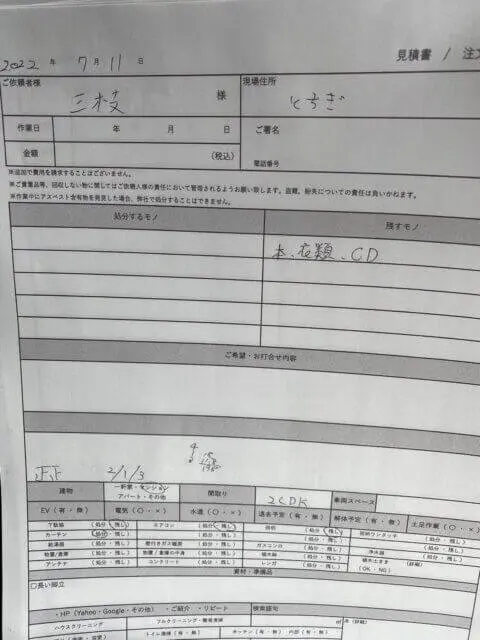 見積書 / 注文
2022 年 7月 11 日
ご依頼者様 三枝 様 現場住所 とちぎ
作業日 年 月 日 ご署名
金額 (税込) 電話番号
※追加で費用を請求することはございません。
※ご貴重品等、回収しない物に関してはご依頼人様の責任において管理されるようお願い致します。盗難、紛失についての責任は負いかねます。
※作業中にアスベスト含有物を発見した場合、弊社で処分することはできません。
処分するモノ 残すモノ
本、衣類、CD
ご希望・お打合せ内容
正正 2/1/3
建物 一軒家・マンション アパート・その他 間取り 2LDK 車両スペース
EV(有・無) 電気(○・×) 水道(○・×) 退去予定(有・無) 解体予定(有・無) 土足作業(○・×)
下駄箱 (処分・残し) エアコン (処分・残し) 照明 (処分・残し)
カーテン (処分・残し) (処分・残し) (処分・残し)
給湯器 (処分・残し) 壁付きガス暖房 (処分・残し) ガスコンロ (処分・残し) 浄水器 (処分・残し)
物置/倉庫 (処分・残し) 物置/倉庫の中身 (処分・残し) 植木鉢 (処分・残し)
アンテナ (処分・残し) コンクリート (処分・残し) レンガ (処分・残し) (OK・NG)
資材・準備品
□長い脚立
・HP(Yahoo・Google・その他) ・ご紹介 ・リピート 検索語句
ハウスクリーニング フルクリーニング・簡易清掃 ㎡ (詳細)
トイレ清掃(有・無) キッチン(有・無) 内部(有・無)